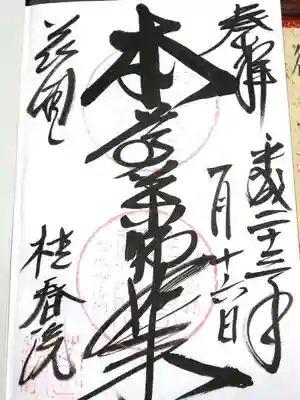 奉拝
平成二十三年
月十六日
本尊薬師如来
花園
桂春院